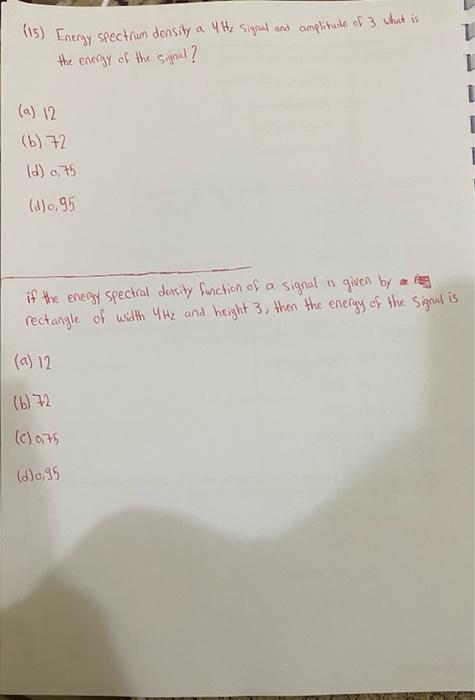 (15) Energy spectrum density a 4 Hz signal and amplitude of 3 what is
the energy of the signal?
(a) 12
(b) 72
(d) 0,75
(d) 0,95
if the energy spectral density function of a signal is given by a
rectangle of width 4Hz and height 3, then the energy of the signal is
(a) 12
(b) 72
(c) 0,75
(d) 0,95